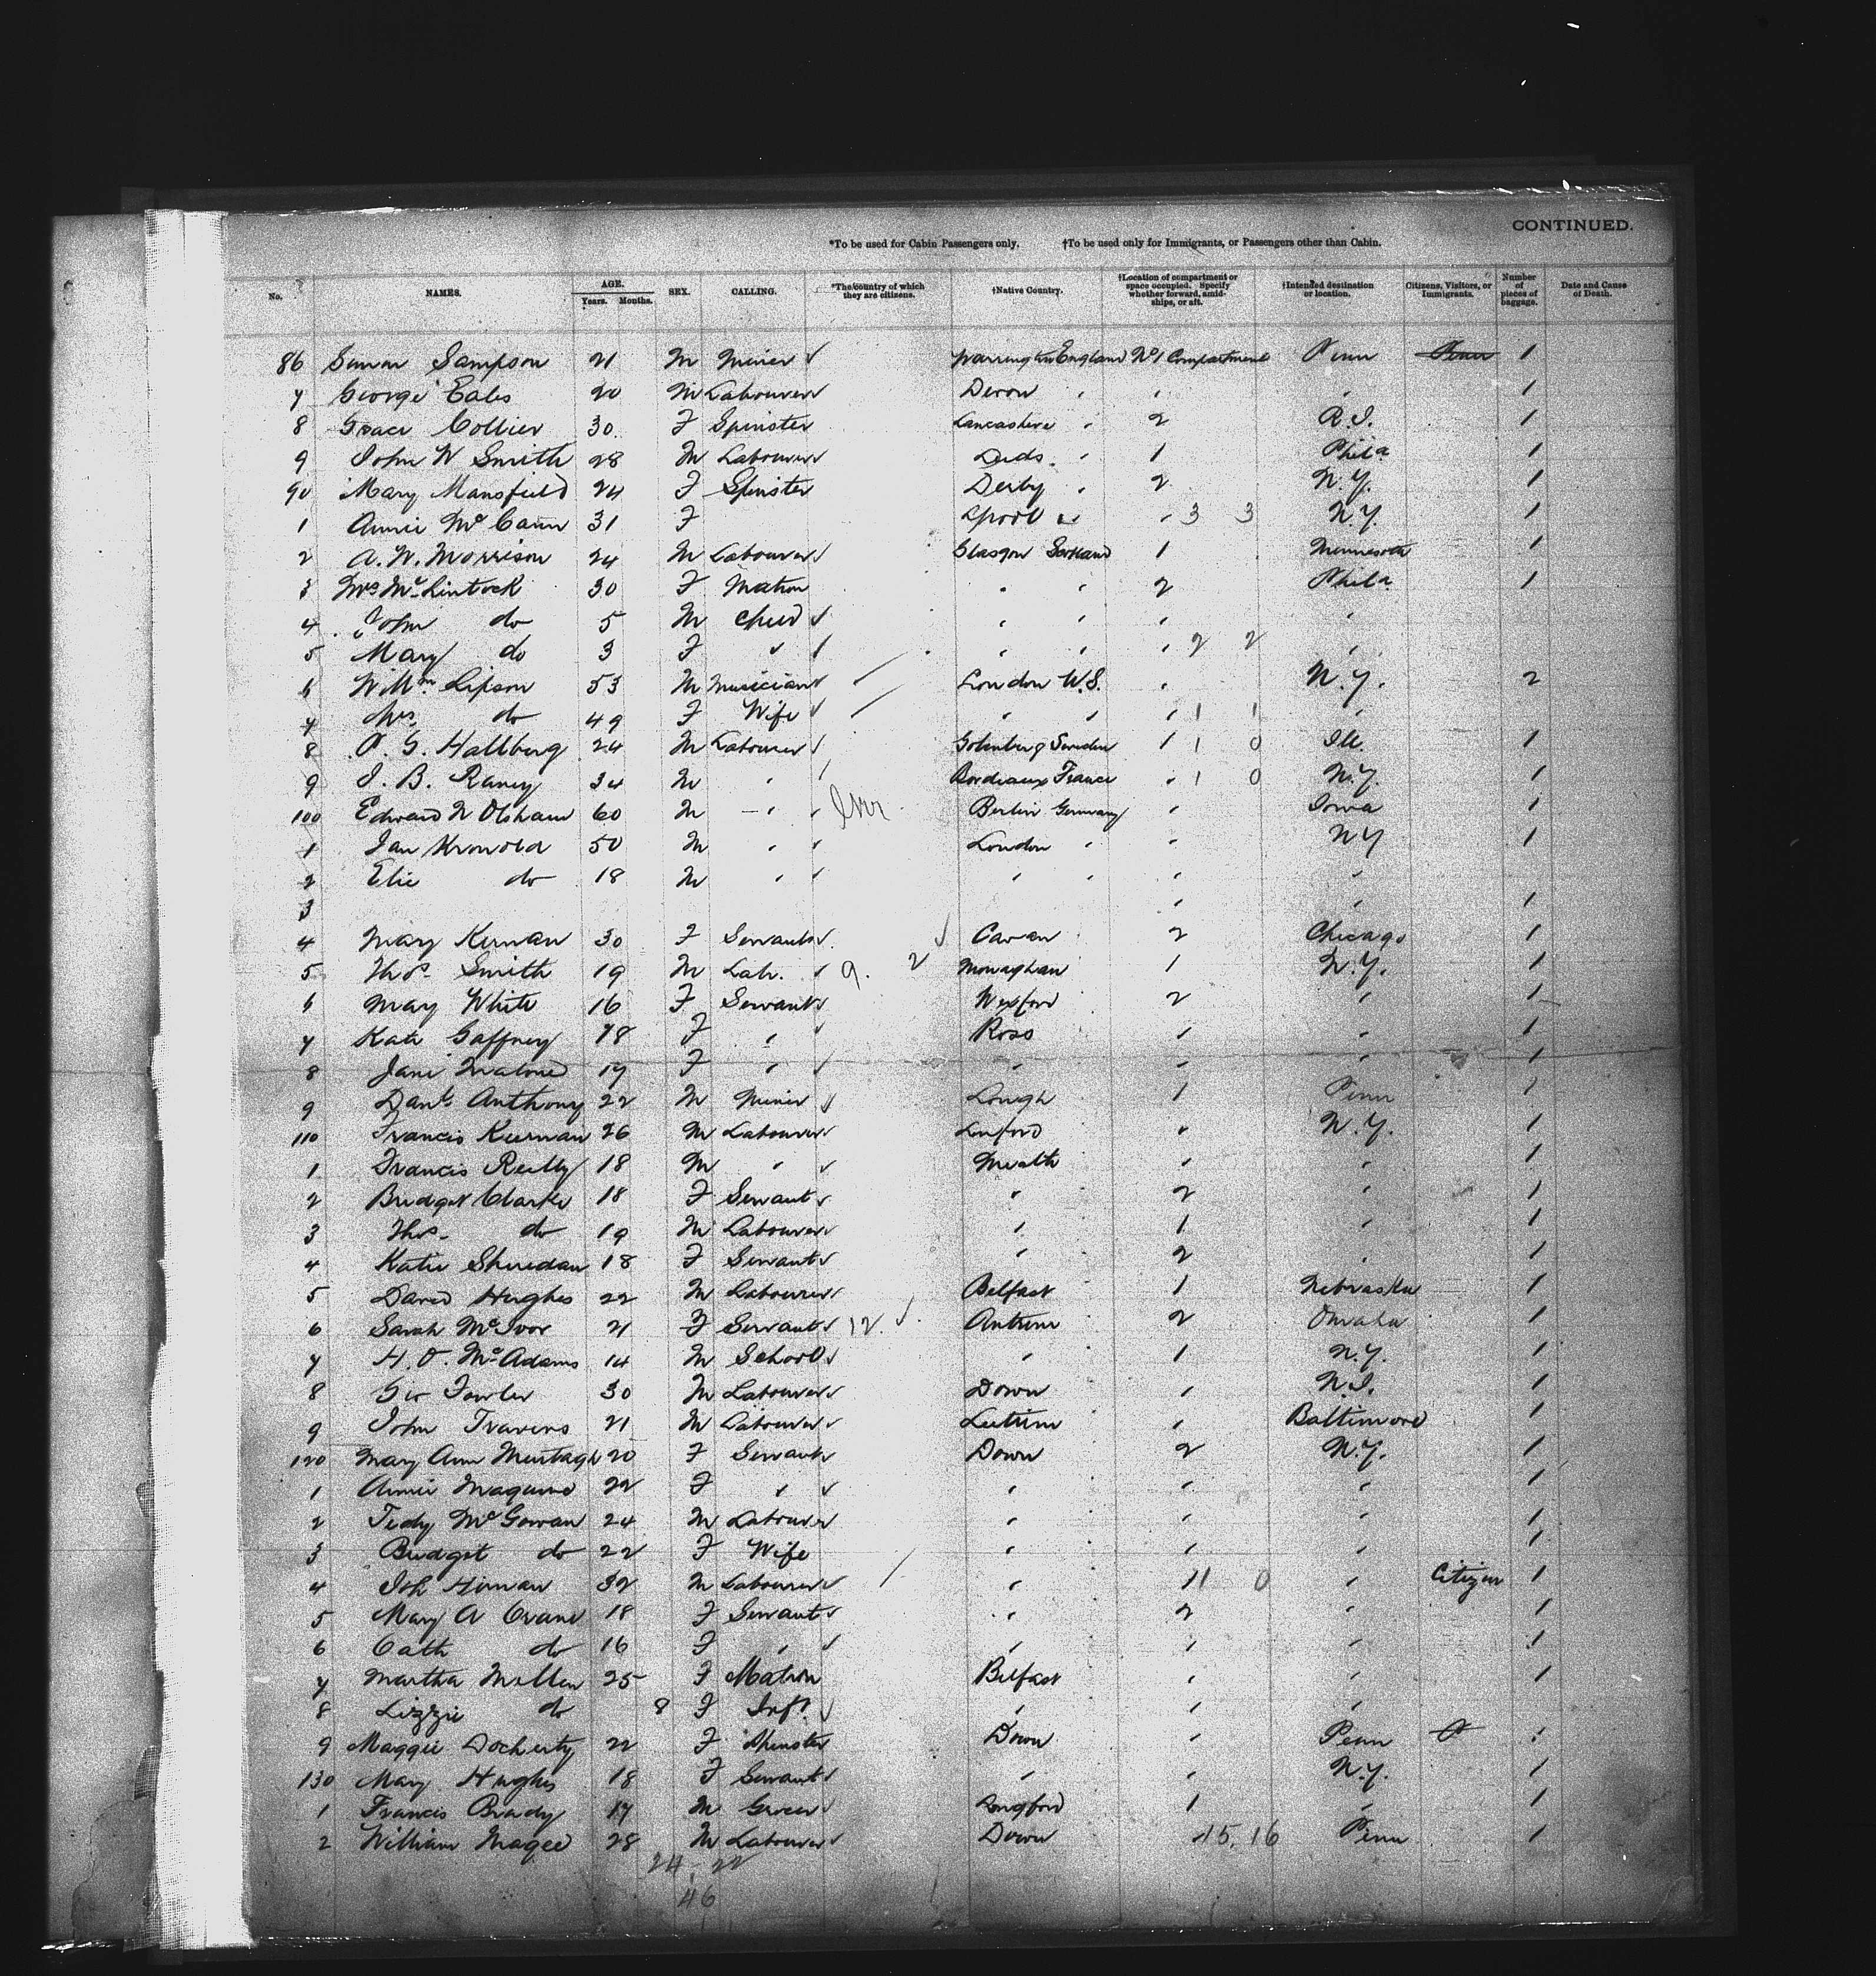 CONTINUED.
*To be used for Cabin Passengers only. †To be used only for Immigrants, or Passengers other than Cabin.
No. NAMES. AGE. Years. Months. SEX. CALLING. *The country of which they are citizens. †Native Country. †Location of compartment or space occupied. Specify whether forward, amidships, or aft. †Intended destination or location. Citizens, Visitors, or Immigrants. Number of pieces of baggage. Date and Cause of Death.
86 Simon Sampson 21 M Miner Warrington England No 1 Compartment Penn 1
7 George Eales 20 M Labourer Devon " " " 1
8 Grace Collier 30 F Spinster Lancashire " 2 R.I. 1
9 John W Smith 28 M Labourer Leeds " 1 Phila 1
90 Mary Mansfield 24 F Spinster Derby " 2 N.Y. 1
1 Annie McCann 31 F Lpool " " 3 3 N.Y. 1
2 A. W. Morrison 24 M Labourer Glasgow Scotland 1 Minnesota 1
3 Mrs McLintock 30 F Matron " " 2 Phila 1
4 John do 5 M Child " " " "
5 Mary do 3 F " " " " 2 2 "
6 Willm Lipson 53 M Musician London W.S. " N.Y. 2
7 Mrs do 49 F Wife " " " 1 1 "
8 P. G. Hallberg 24 M Labourer Gotenburg Sweden 1 1 0 Ill. 1
9 J. B. Raney 34 M " Bordeaux France " 1 0 N.Y. 1
100 Edward 60 M " Berlin Germany " Iowa 1
1 Jan Kronold 50 M " London " " NY 1
2 Elie do 18 M " " " " "
3 " " 1
4 Mary Kernan 30 F Servant Cavan 2 Chicago 1
5 Thos. Smith 19 M Lab. 9. 2 Monaghan 1 N.Y. 1
6 Mary White 16 F Servant Wexford 2 " 1
7 Kate Gaffney 18 F " Ross " " 1
8 Jane Malone 19 F " " " " 1
9 Danl. Anthony 22 M Miner Lough 1 Penn 1
110 Francis Kiernan 26 M Labourer " N.Y. 1
1 Francis Reilly 18 M " Meath " " 1
2 Bridget Clarke 18 F Servant " 2 " 1
3 Thos. do 19 M Labourer " 1 " 1
4 Katie Sheridan 18 F Servant " 2 " 1
5 David Hughes 22 M Labourer Belfast 1 Nebraska 1
6 Sarah McIvor 21 F Servant 12. Antrim 2 Omaha 1
7 H. O. McAdams 14 M School " 1 N.Y. 1
8 Geo Fowler 30 M Labourer Down " N.J. 1
9 John Travers 21 M Labourer Leitrim " Baltimore 1
120 Mary Ann Murtagh 20 F Servant Down 2 N.Y. 1
1 Annie Maguire 22 F " " " " 1
2 Tedy McGowan 24 M Labourer " " " 1
3 Bridget do 22 F Wife " " " 1
4 32 M Labourer " 1 1 0 " Citizen 1
5 Mary A Crane 18 F Servant " 2 " 1
6 Cath do 16 F " " " " 1
7 Martha Millen 25 F Matron Belfast " " 1
8 Lizzie do 8 F Inft. " " "
9 Maggie Docherty 22 F Spinster Down " Penn 1
130 Mary Hughes 18 F Servant " " N.Y. 1
1 Francis Brady 17 M Grocer Longford 1 " 1
2 William Magee 28 M Labourer Down 15, 16 Penn 1
24 - 22
46